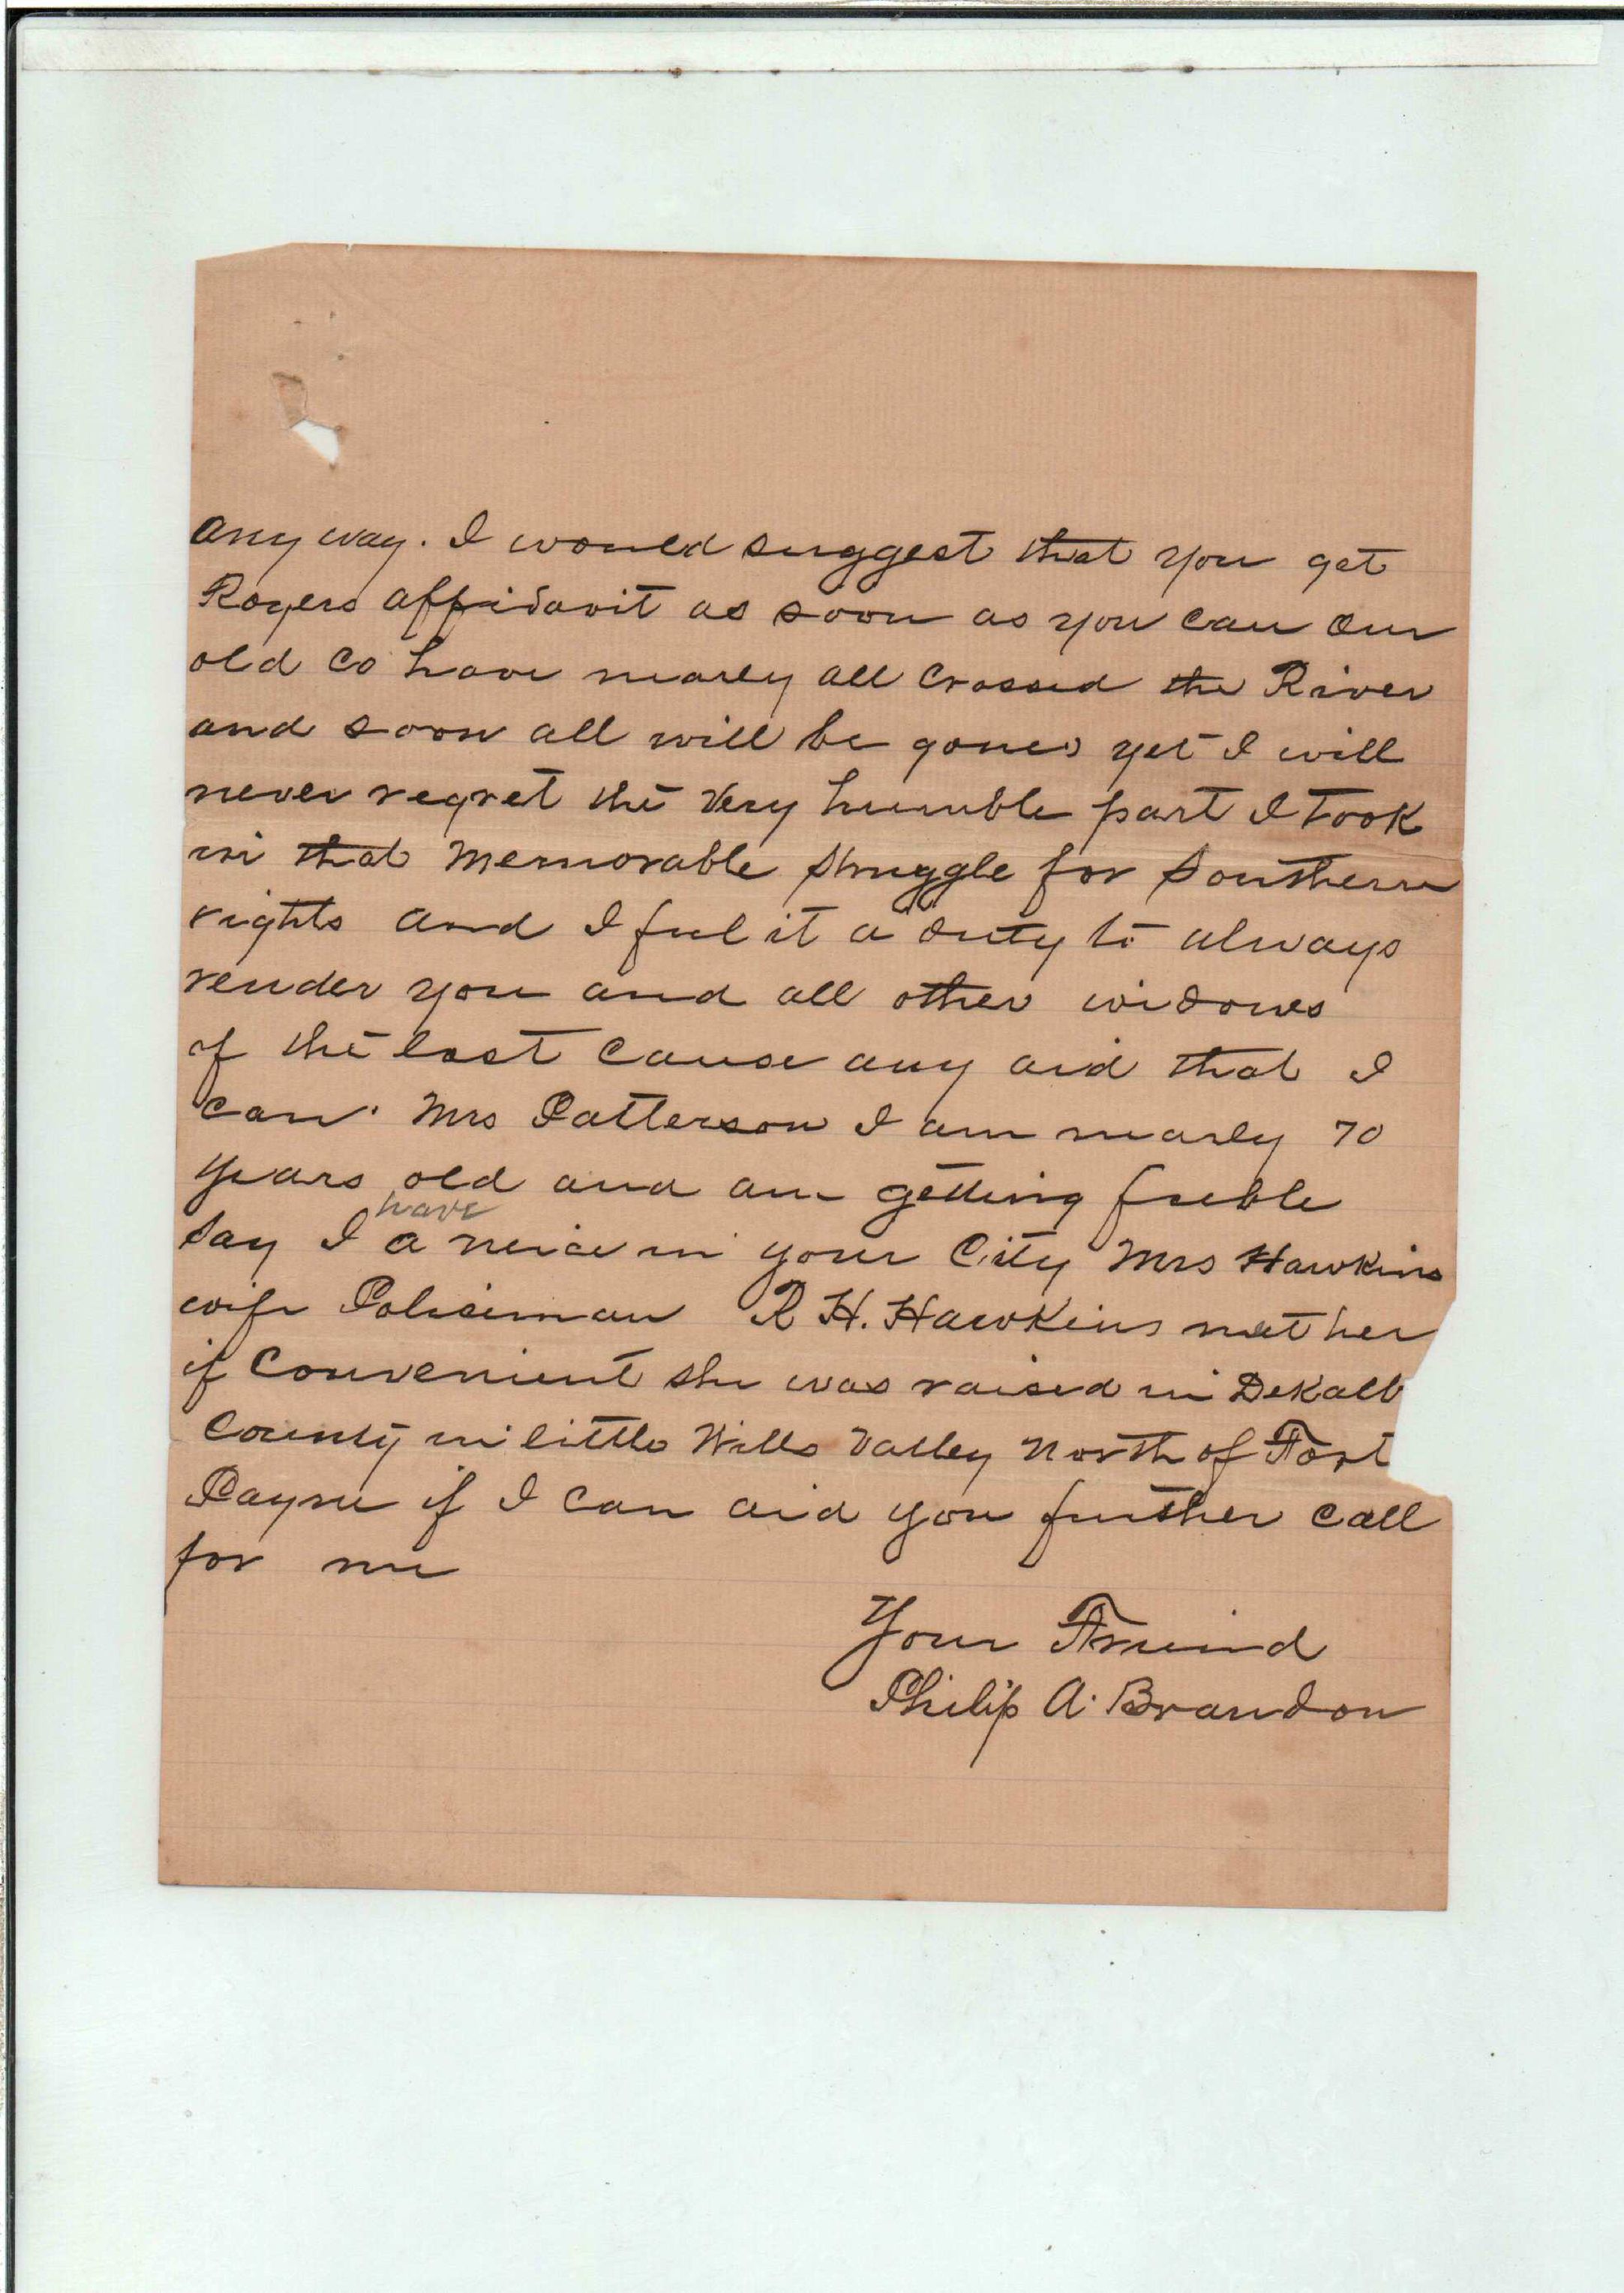 any way. I would suggest that you get
Rogers affidavit as soon as you can Our
old Co have nearly all Crossed the River
and soon all will be gone yet I will
never regret the Very humble part I Took
in that Memorable struggle for Southern
rights and I feel it a duty to always
render you and all other widows
of the lost Cause any aid that I
can. Mrs Patterson I am nearly 70
years old and am getting feeble
have
say I a neice in your City Mrs Hawkins
wife Policeman R H. Hawkins met her
if Convenient she was raised in DeKalb
County in little Wills Valley North of Fort
Payne if I Can aid you further call
for me
Your Freind
Philip A. Brandon